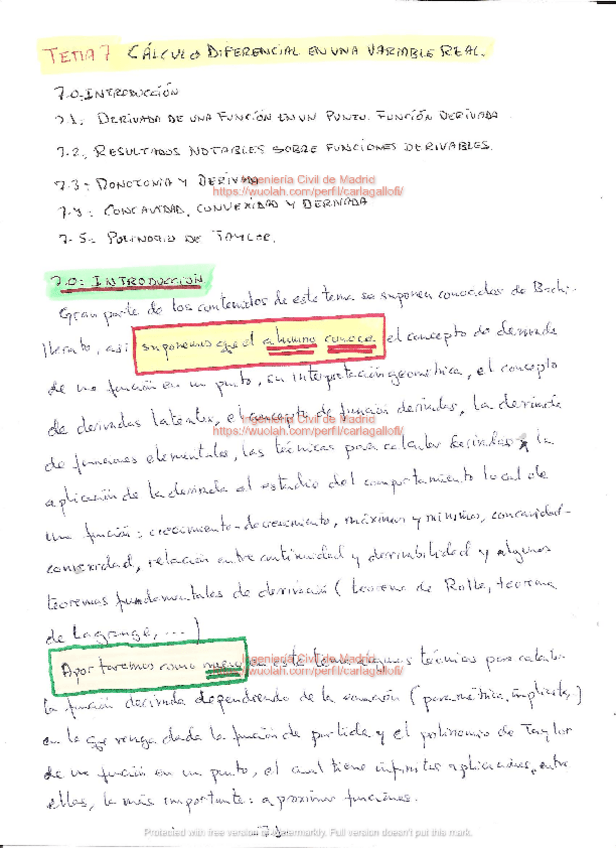 TEMA 7 CÁLCULO DIFERENCIAL EN UNA VARIABLE REAL.
7.0: INTRODUCCIÓN
7.1. DERIVADA DE UNA FUNCIÓN EN UN PUNTO. FUNCIÓN DERIVADA
7.2. RESULTADOS NOTABLES SOBRE FUNCIONES DERIVABLES.
7.3: MONOTONIA Y DERIVADA
Ingeniería Civil de Madrid
https://wuolah.com/perfil/carlagallofi/
7.4: CONCAVIDAD, CONVEXIDAD Y DERIVADA
7.5: POLINOMIO DE TAYLOR.
7.0: INTRODUCCIÓN
Gran parte de los contenidos de este tema se suponen conocidos de Bachi-
llerato, así suponemos que el alumno conoce el concepto de derivada
de una función en un punto, su interpretación geométrica, el concepto
de derivadas laterales, el concepto de función derivada, la derivada
Ingeniería Civil de Madrid
https://wuolah.com/perfil/carlagallofi/
de funciones elementales, las técnicas para calcular derivadas y la
aplicación de la derivada al estudio del comportamiento local de
una función: crecimiento-decrecimiento, máximos y mínimos, concavidad-
convexidad, relación entre continuidad y derivabilidad y algunos
teoremas fundamentales de derivación (teorema de Rolle, teorema
de Lagrange, ...)
Aportaremos como nuevo en este tema algunas técnicas para calcular
Ingeniería Civil de Madrid
https://wuolah.com/perfil/carlagallofi/
la función derivada dependiendo de la ecuación (paramétrica, implícita,)
en la que venga dada la función de partida y el polinomio de Taylor
de una función en un punto, el cual tiene infinitas aplicaciones, entre
ellas, la más importante: aproximar funciones.
Protected with free version of Watermarkly. Full version doesn't put this mark.